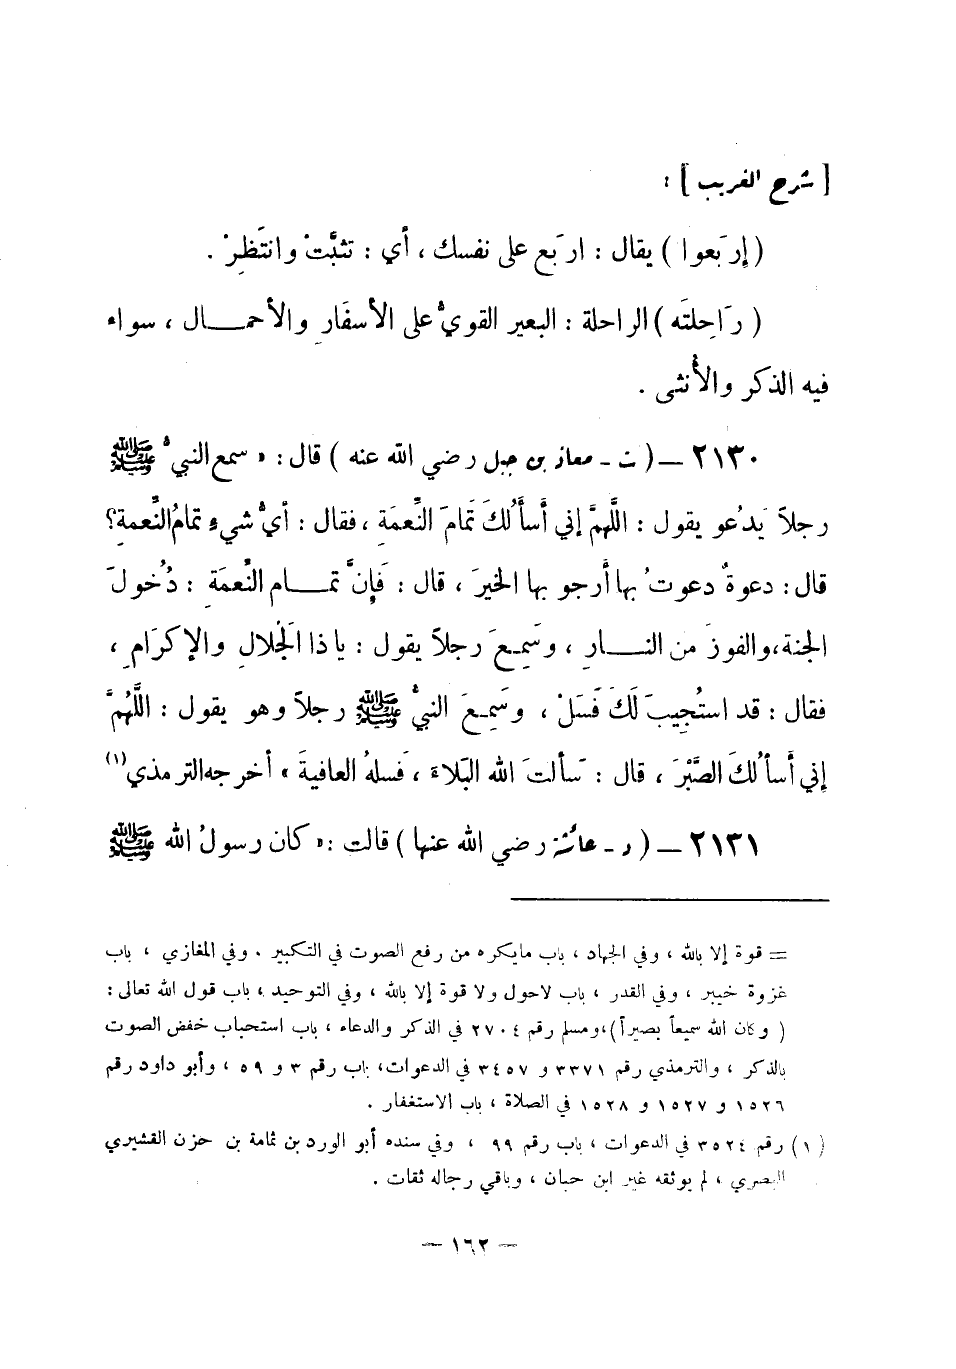 [ شرح الغريب ] :
( إِربَعوا ) يقال : اربَع على نفسك ، أي : تثبَّتْ وانتَظِرْ .
( رَاحِلتَه ) الراحلة : البعير القويُّ على الأسفَارِ والأحمـــال ، سواء
فيه الذكر والأُنثى .
٢١٣٠ – ( ت - معاذ بن جبل رضي الله عنه ) قال : « سمع النبيُّ ﷺ
رجلاً يَدْعو يقول : اللَّهمَّ إني أَسأَلُكَ تمَامَ النِّعمَةِ ، فقال : أيُّ شيءٍ تمامُ النِّعمةِ؟
قال : دعوةٌ دعوتُ بها أَرجو بها الخيرَ ، قال : فَإِنَّ تمـــام النِّعمَةِ : دُخولَ
الجنة،والفوزَ من النـــارِ ، وسَمِعَ رجلاً يقول : ياذا الجَلالِ والإكرَامِ ،
فقال : قد استُجِيبَ لَكَ فَسَلْ ، وسَمِعَ النبيُّ ﷺ رجلاً وهو يقول : اللَّهُمَّ
إني أَسأَلُكَ الصَّبْرَ ، قال : سَألتَ الله البَلاءَ ، فَسلهُ العافيةَ » أخرجه الترمذي(١)
٢١٣١ – ( د - عائشة رضي الله عنها ) قالت : « كان رسولُ الله ﷺ
= قوة إلا بالله ، وفي الجهاد ، باب مايكره من رفع الصوت في التكبير . وفي المغازي ، باب
غزوة خيبر ، وفي القدر ، باب لاحول ولا قوة إلا بالله ، وفي التوحيد ، باب قول الله تعالى :
( وكان الله سميعاً بصيراً )،ومسلم رقم ٢٧٠٤ في الذكر والدعاء ، باب استحباب خفض الصوت
بالذكر ، والترمذي رقم ٣٣٧١ و ٣٤٥٧ في الدعوات، باب رقم ٣ و ٥٩ ، وأبو داود رقم
١٥٢٦ و ١٥٢٧ و ١٥٢٨ في الصلاة ، باب الاستغفار .
(١) رقم ٣٥٢٤ في الدعوات ، باب رقم ٩٩ ، وفي سنده أبو الورد بن ثمامة بن حزن القشيري
البصري ، لم يوثقه غير ابن حبان ، وباقي رجاله ثقات .
– ١٦٢ –